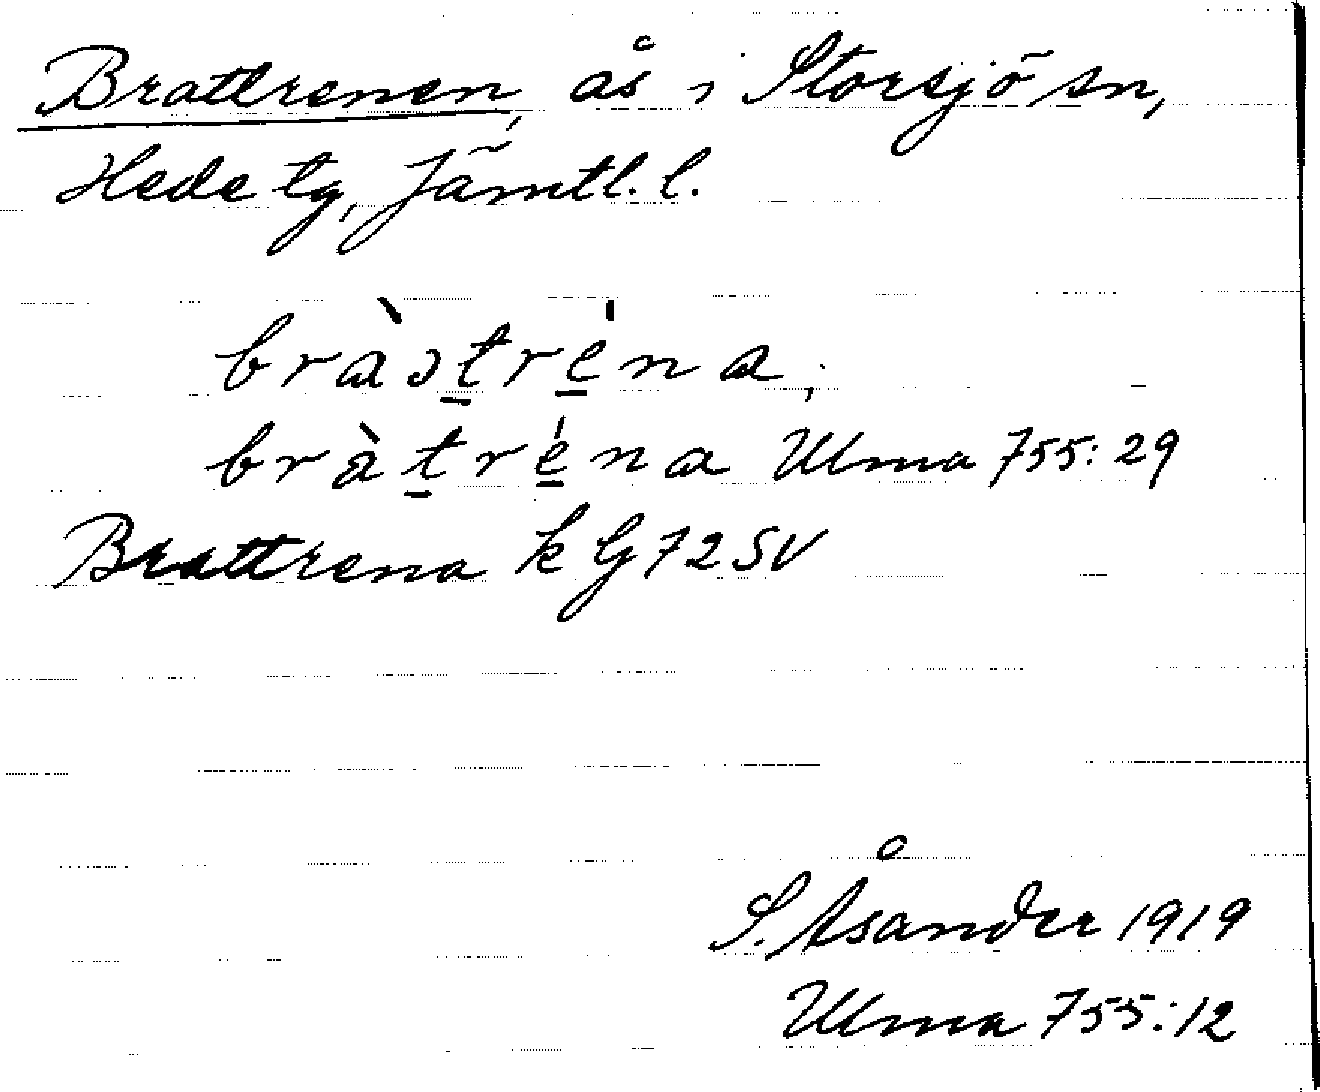 Brattrenen, ås i Storsjö sn,
Hede tg, Jämtl. l.
bràɔt̲ré̲na,
bràt̲ré̲na Ulma 755:29
Brattrena k G 72 SV
S. Åsander 1919
Ulma 755:12